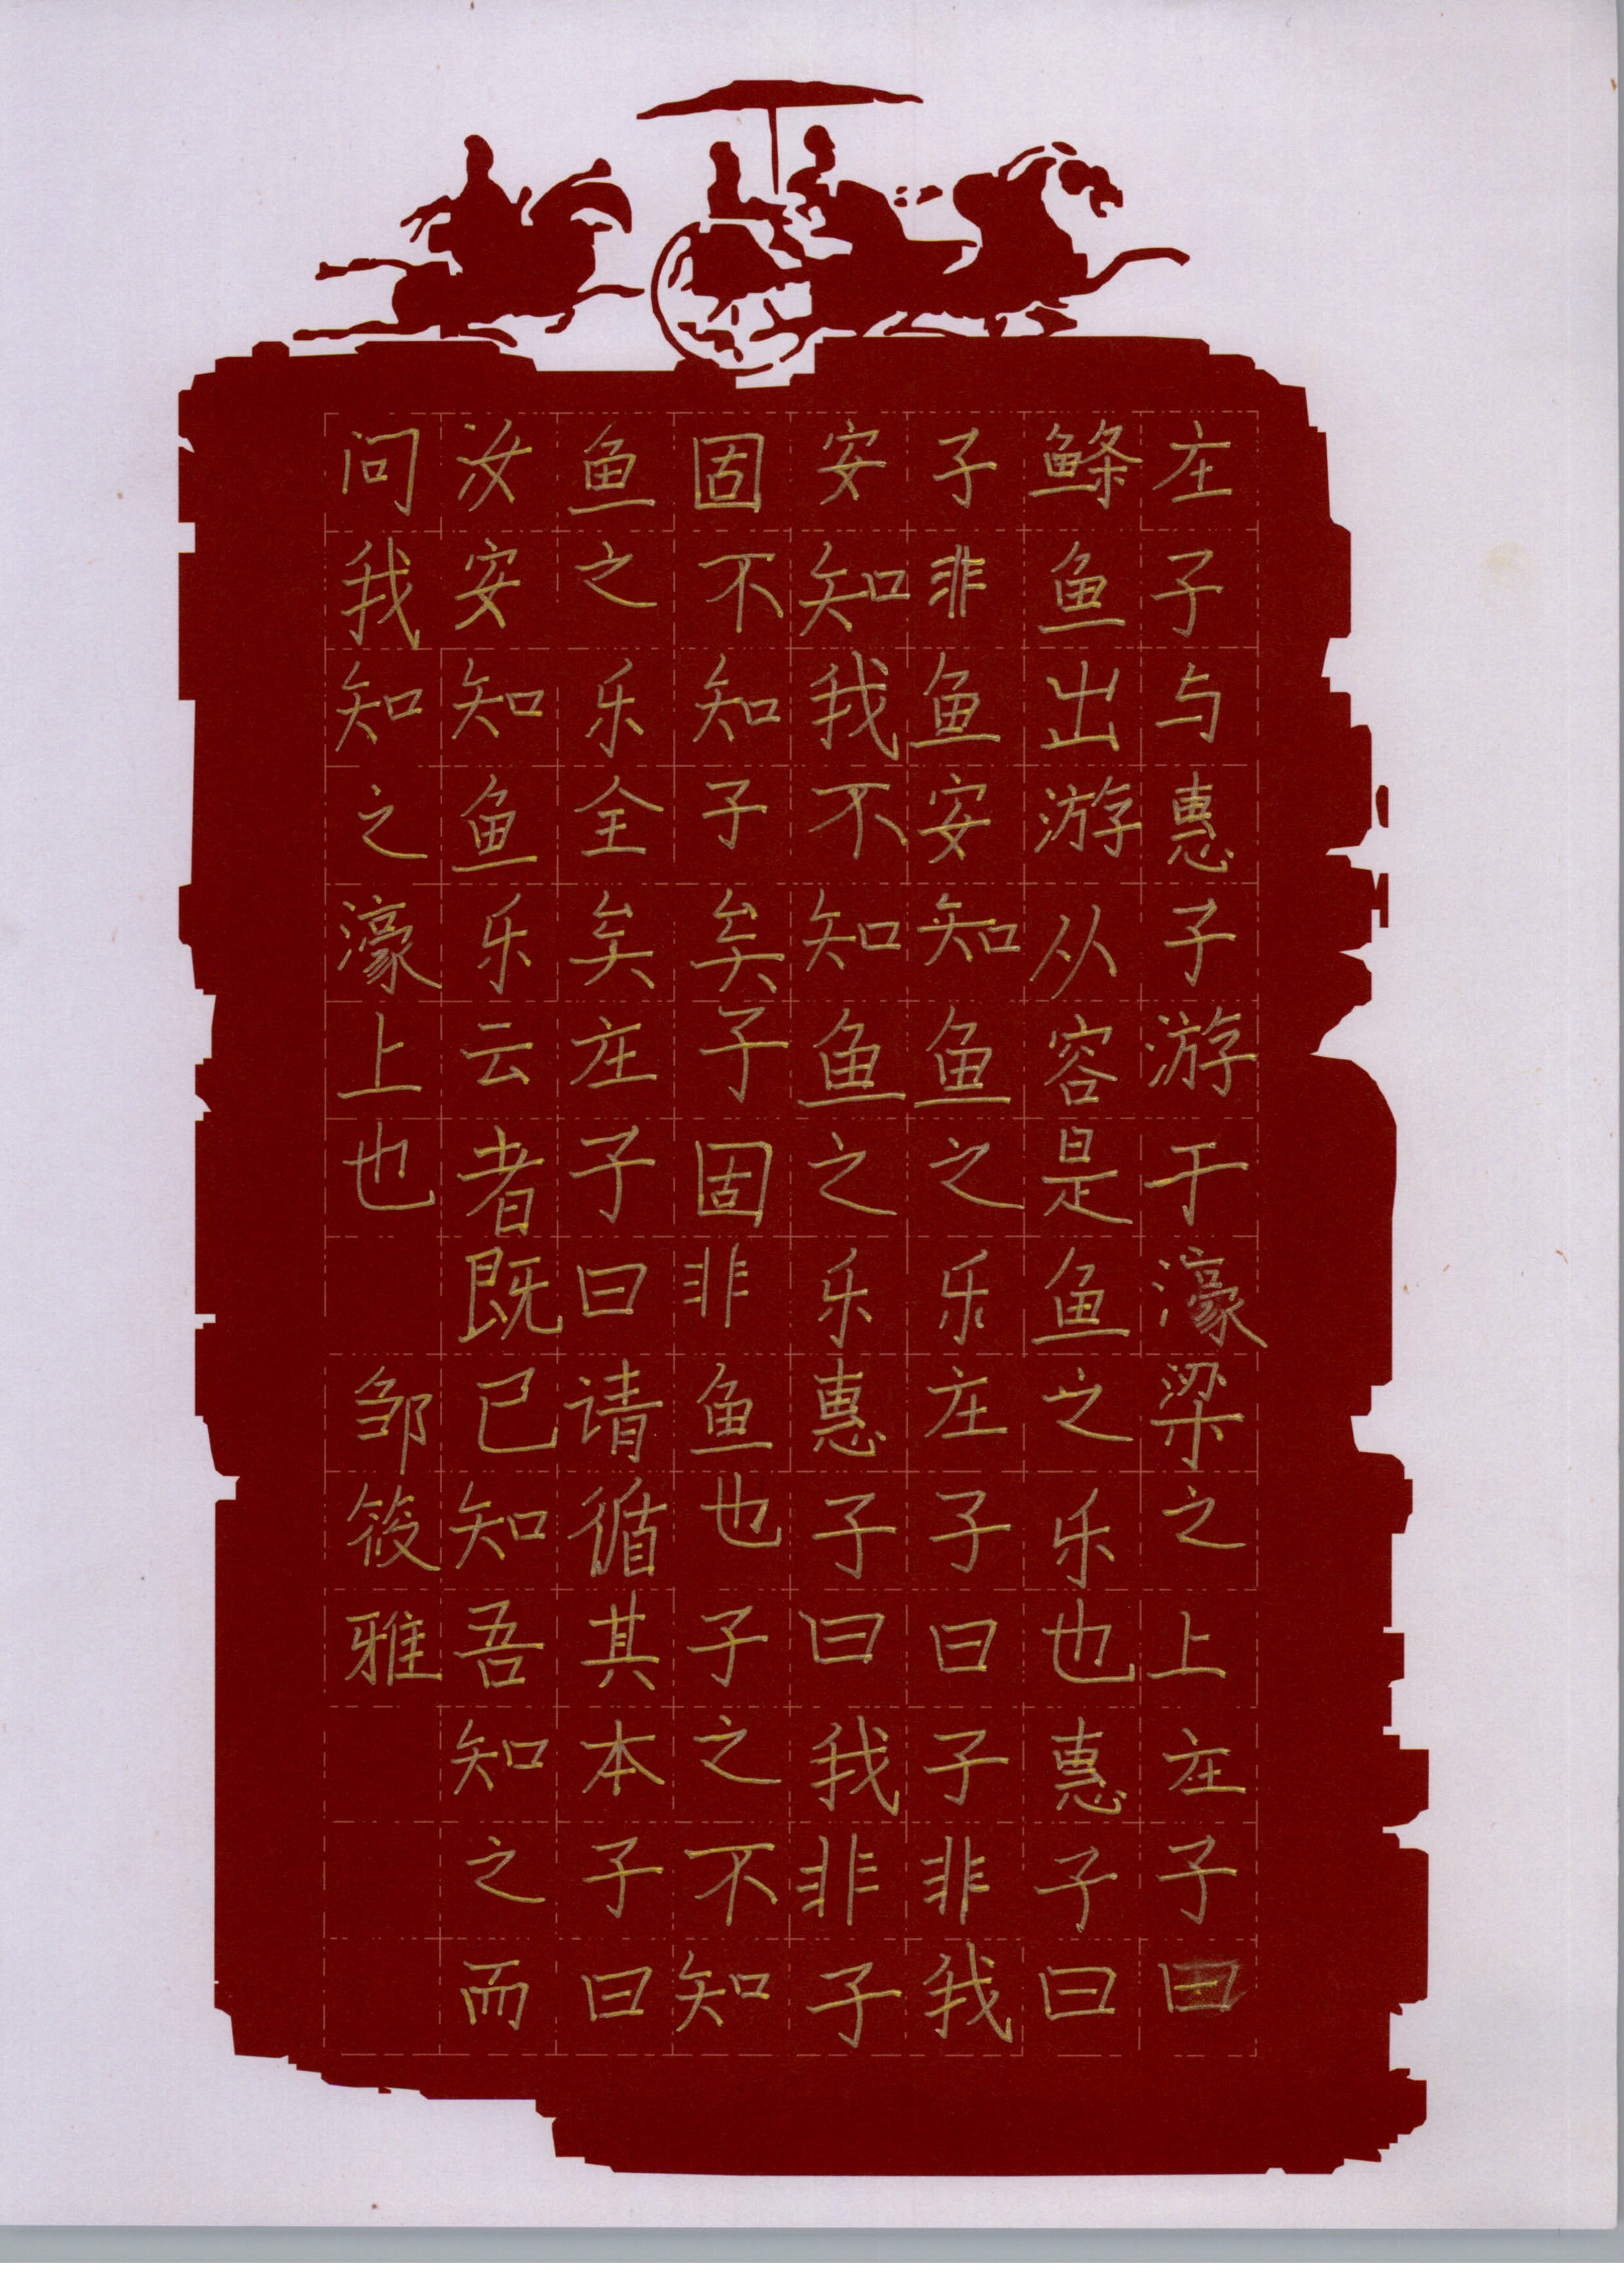 庄子与惠子游于濠梁之上庄子曰
鲦鱼出游从容是鱼之乐也惠子曰
子非鱼安知鱼之乐庄子曰子非我
安知我不知鱼之乐惠子曰我非子
固不知子矣子固非鱼也子之不知
鱼之乐全矣庄子曰请循其本子曰
汝安知鱼乐云者既已知吾知之而
问我知之濠上也
邹筱雅